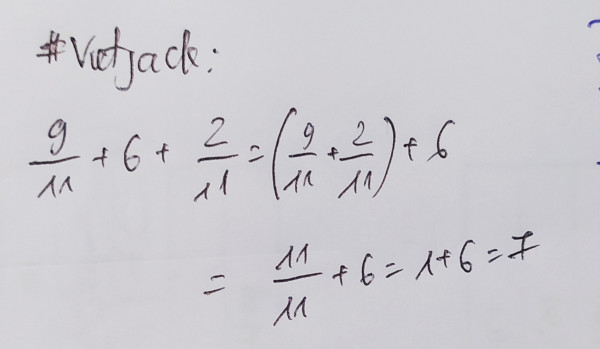 #Vietjack:
9/11 + 6 + 2/11 = (9/11 + 2/11) + 6
= 11/11 + 6 = 1+6 = 7